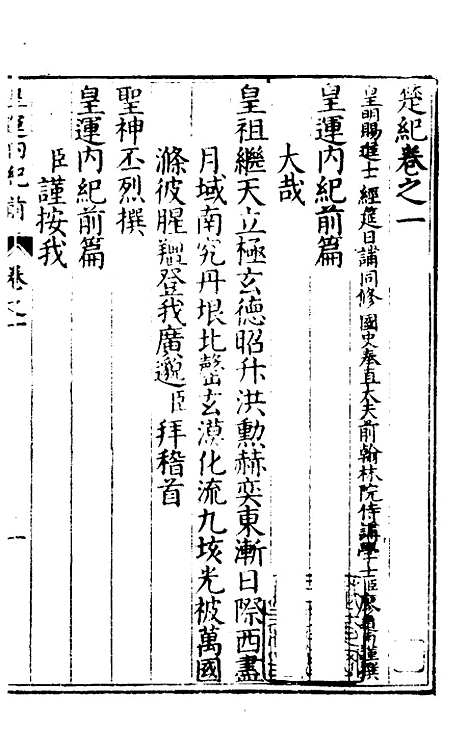 楚紀卷之一
皇明賜進士經筵日講同修國史奉直大夫前翰林院侍講學士臣廖道南謹撰
皇運內紀前篇
大哉
皇祖繼天立極玄德昭升洪勳赫奕東漸日際西盡
月域南究丹垠北罄玄漠化流九垓光被萬國
滌彼腥羶登我廣邈臣拜稽首
聖神丕烈撰
皇運內紀前篇
臣謹按我
皇運內紀前
卷之一
一